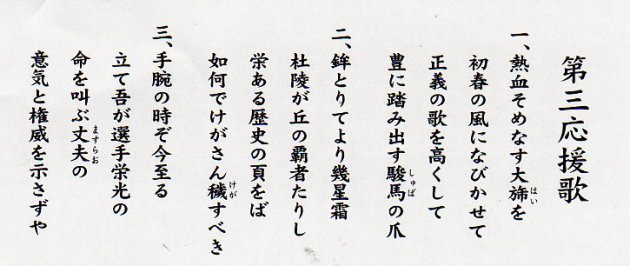 第三応援歌
一、熱血そめなす大旆を
初春の風になびかせて
正義の歌を高くして
豊に踏み出す駿馬の爪
二、鉾とりてより幾星霜
杜陵が丘の覇者たりし
栄ある歴史の頁をば
如何でけがさん穢すべき
三、手腕の時ぞ今至る
立て吾が選手栄光の
命を叫ぶ丈夫の
意気と権威を示さずや
はい
しゅば
けが
ますらお